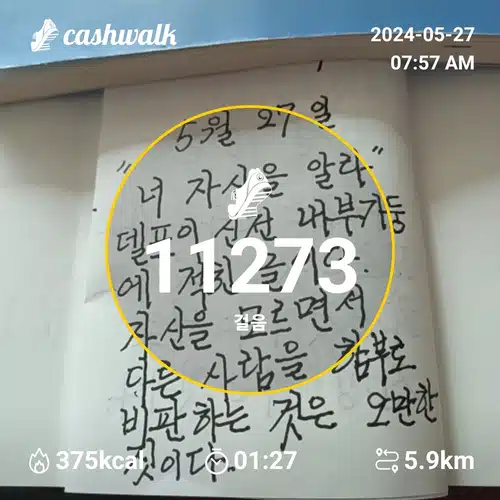 cashwalk
2024-05-27
07:57 AM
5월 27일
"너 자신을 알라."
델포이 신전 내부기둥
에 적힌
자신을 모르면서
다른 사람을 함부로
비판하는 것은 오만한
것이다.
11273
걸음
375kcal
01:27
5.9km